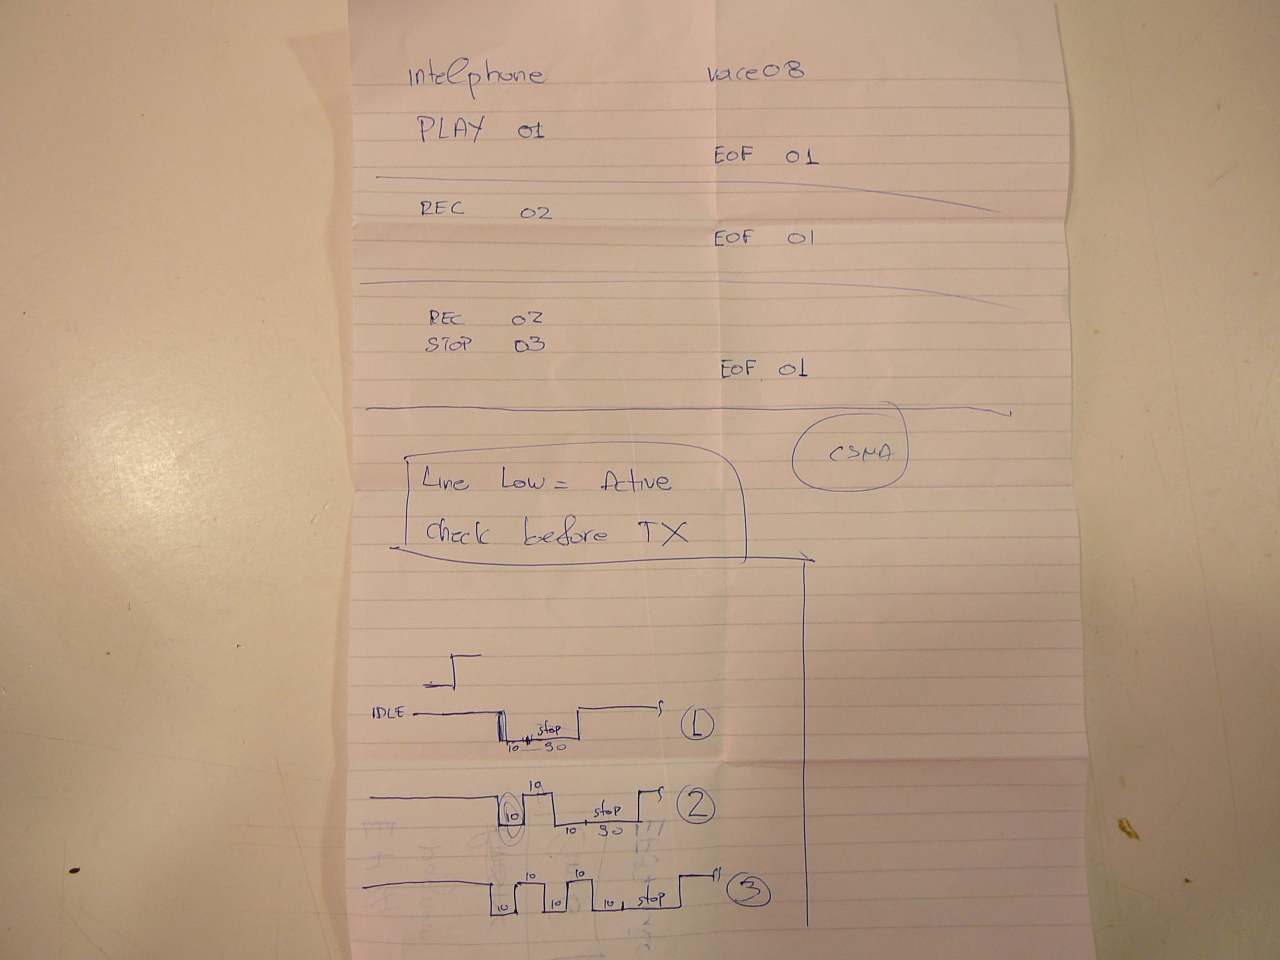 intelphone vace08
PLAY 01
EOF 01
REC 02
EOF 01
REC 02
STOP 03
EOF 01
CSMA
Line Low = Active
check before TX
IDLE
stop
10 90
1
10
10 stop
10 90
2
10 10
10 10 10 stop
3